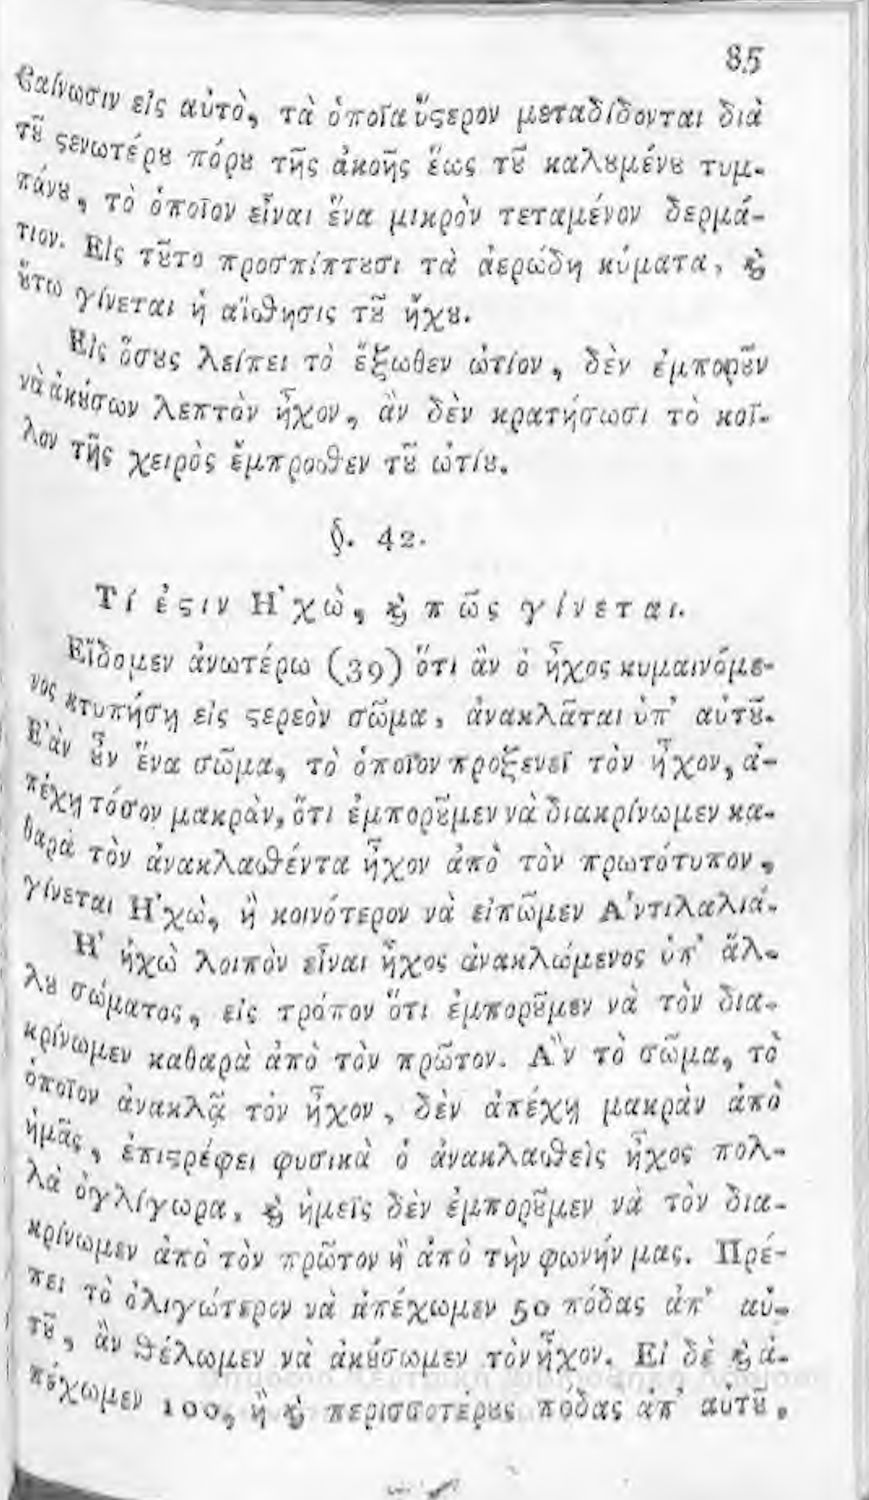 85
βαίνωσιν εἰς αὐτὸ, τὰ ὁποῖα ὕϛερον μεταδίδονται διὰ
τȣ͂ ϛενωτέρȣ πόρȣ τῆς ἀκοῆς ἕως τȣ͂ καλȣμένȣ τυμ-
πάνȣ, τὸ ὁποῖον εἶναι ἕνα μικρὸν τεταμένον δερμά-
τιον. Εἰς τȣ͂το προσπίπτȣσι τὰ ἀερώδη κύματα, ϗ̀
ȣ῞τω γίνεται ἡ αἴσθησις τȣ͂ ἤχȣ.
Εἰς ὅσȣς λείπει τὸ ἔξωθεν ὠτίον, δὲν ἐμπορȣ͂ν
νὰ ἀκȣ́σων λεπτὸν ἦχον, ἂν δὲν κρατήσωσι τὸ κοῖ-
λον τῆς χειρὸς ἔμπροσθεν τȣ͂ ὠτίȣ.
§. 42.
Τί ἐϛιν Η᾿χὼ, ϗ̀ πῶς γίνεται.
Εἴδομεν ἀνωτέρω (39) ὅτι ἂν ὁ ἦχος κυμαινόμε-
νος κτυπήσῃ εἰς ϛερεὸν σῶμα, ἀνακλᾶται ὑπ᾿ αὐτȣ͂.
Ε᾿ὰν ȣ῏ν ἕνα σῶμα, τὸ ὁποῖον προξενεῖ τὸν ἦχον, ἀ-
πέχῃ τόσον μακρὰν, ὅτι ἐμπορȣ͂μεν νὰ διακρίνωμεν κα-
θαρὰ τὸν ἀνακλασθέντα ἦχον ἀπὸ τὸν πρωτότυπον,
γίνεται Η᾿χὼ, ἢ κοινότερον νὰ εἰπῶμεν Α᾿ντιλαλιά.
Η῾ ἠχὼ λοιπὸν εἶναι ἦχος ἀνακλώμενος ὑπ᾿ ἄλ-
λȣ σώματος, εἰς τρόπον ὅτι ἐμπορȣ͂μεν νὰ τὸν δια-
κρίνωμεν καθαρὰ ἀπὸ τὸν πρῶτον. Α῍ν τὸ σῶμα, τὸ
ὁποῖον ἀνακλᾷ τὸν ἦχον, δὲν ἀπέχῃ μακρὰν ἀπὸ
ἡμᾶς, ἐπιϛρέφει φυσικὰ ὁ ἀνακλασθεὶς ἦχος πολ-
λὰ ὀγλίγωρα, ϗ̀ ἡμεῖς δὲν ἐμπορȣ͂μεν νὰ τὸν δια-
κρίνωμεν ἀπὸ τὸν πρῶτον ἢ ἀπὸ τὴν φωνήν μας. Πρέ-
πει τὸ ὀλιγώτερον νὰ ἀπέχωμεν 50 πόδας ἀπ᾿ αὐ-
τȣ͂, ἂν θέλωμεν νὰ ἀκȣ́σωμεν τὸν ἦχον. Εἰ δὲ ϗ̀ ἀ-
πέχωμεν 100, ἢ ϗ̀ περισσοτέρȣς πόδας ἀπ᾿ αὐτȣ͂,